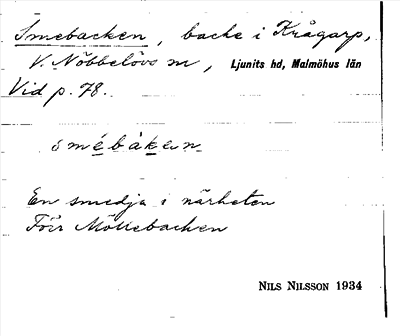 Smebacken, backe i Krågarp,
V. Nöbbelövs sn, Ljunits hd, Malmöhus län
Vid p. 78.
smébàkən
En smedja i närheten
Förr Möllebacken
NILS NILSSON 1934